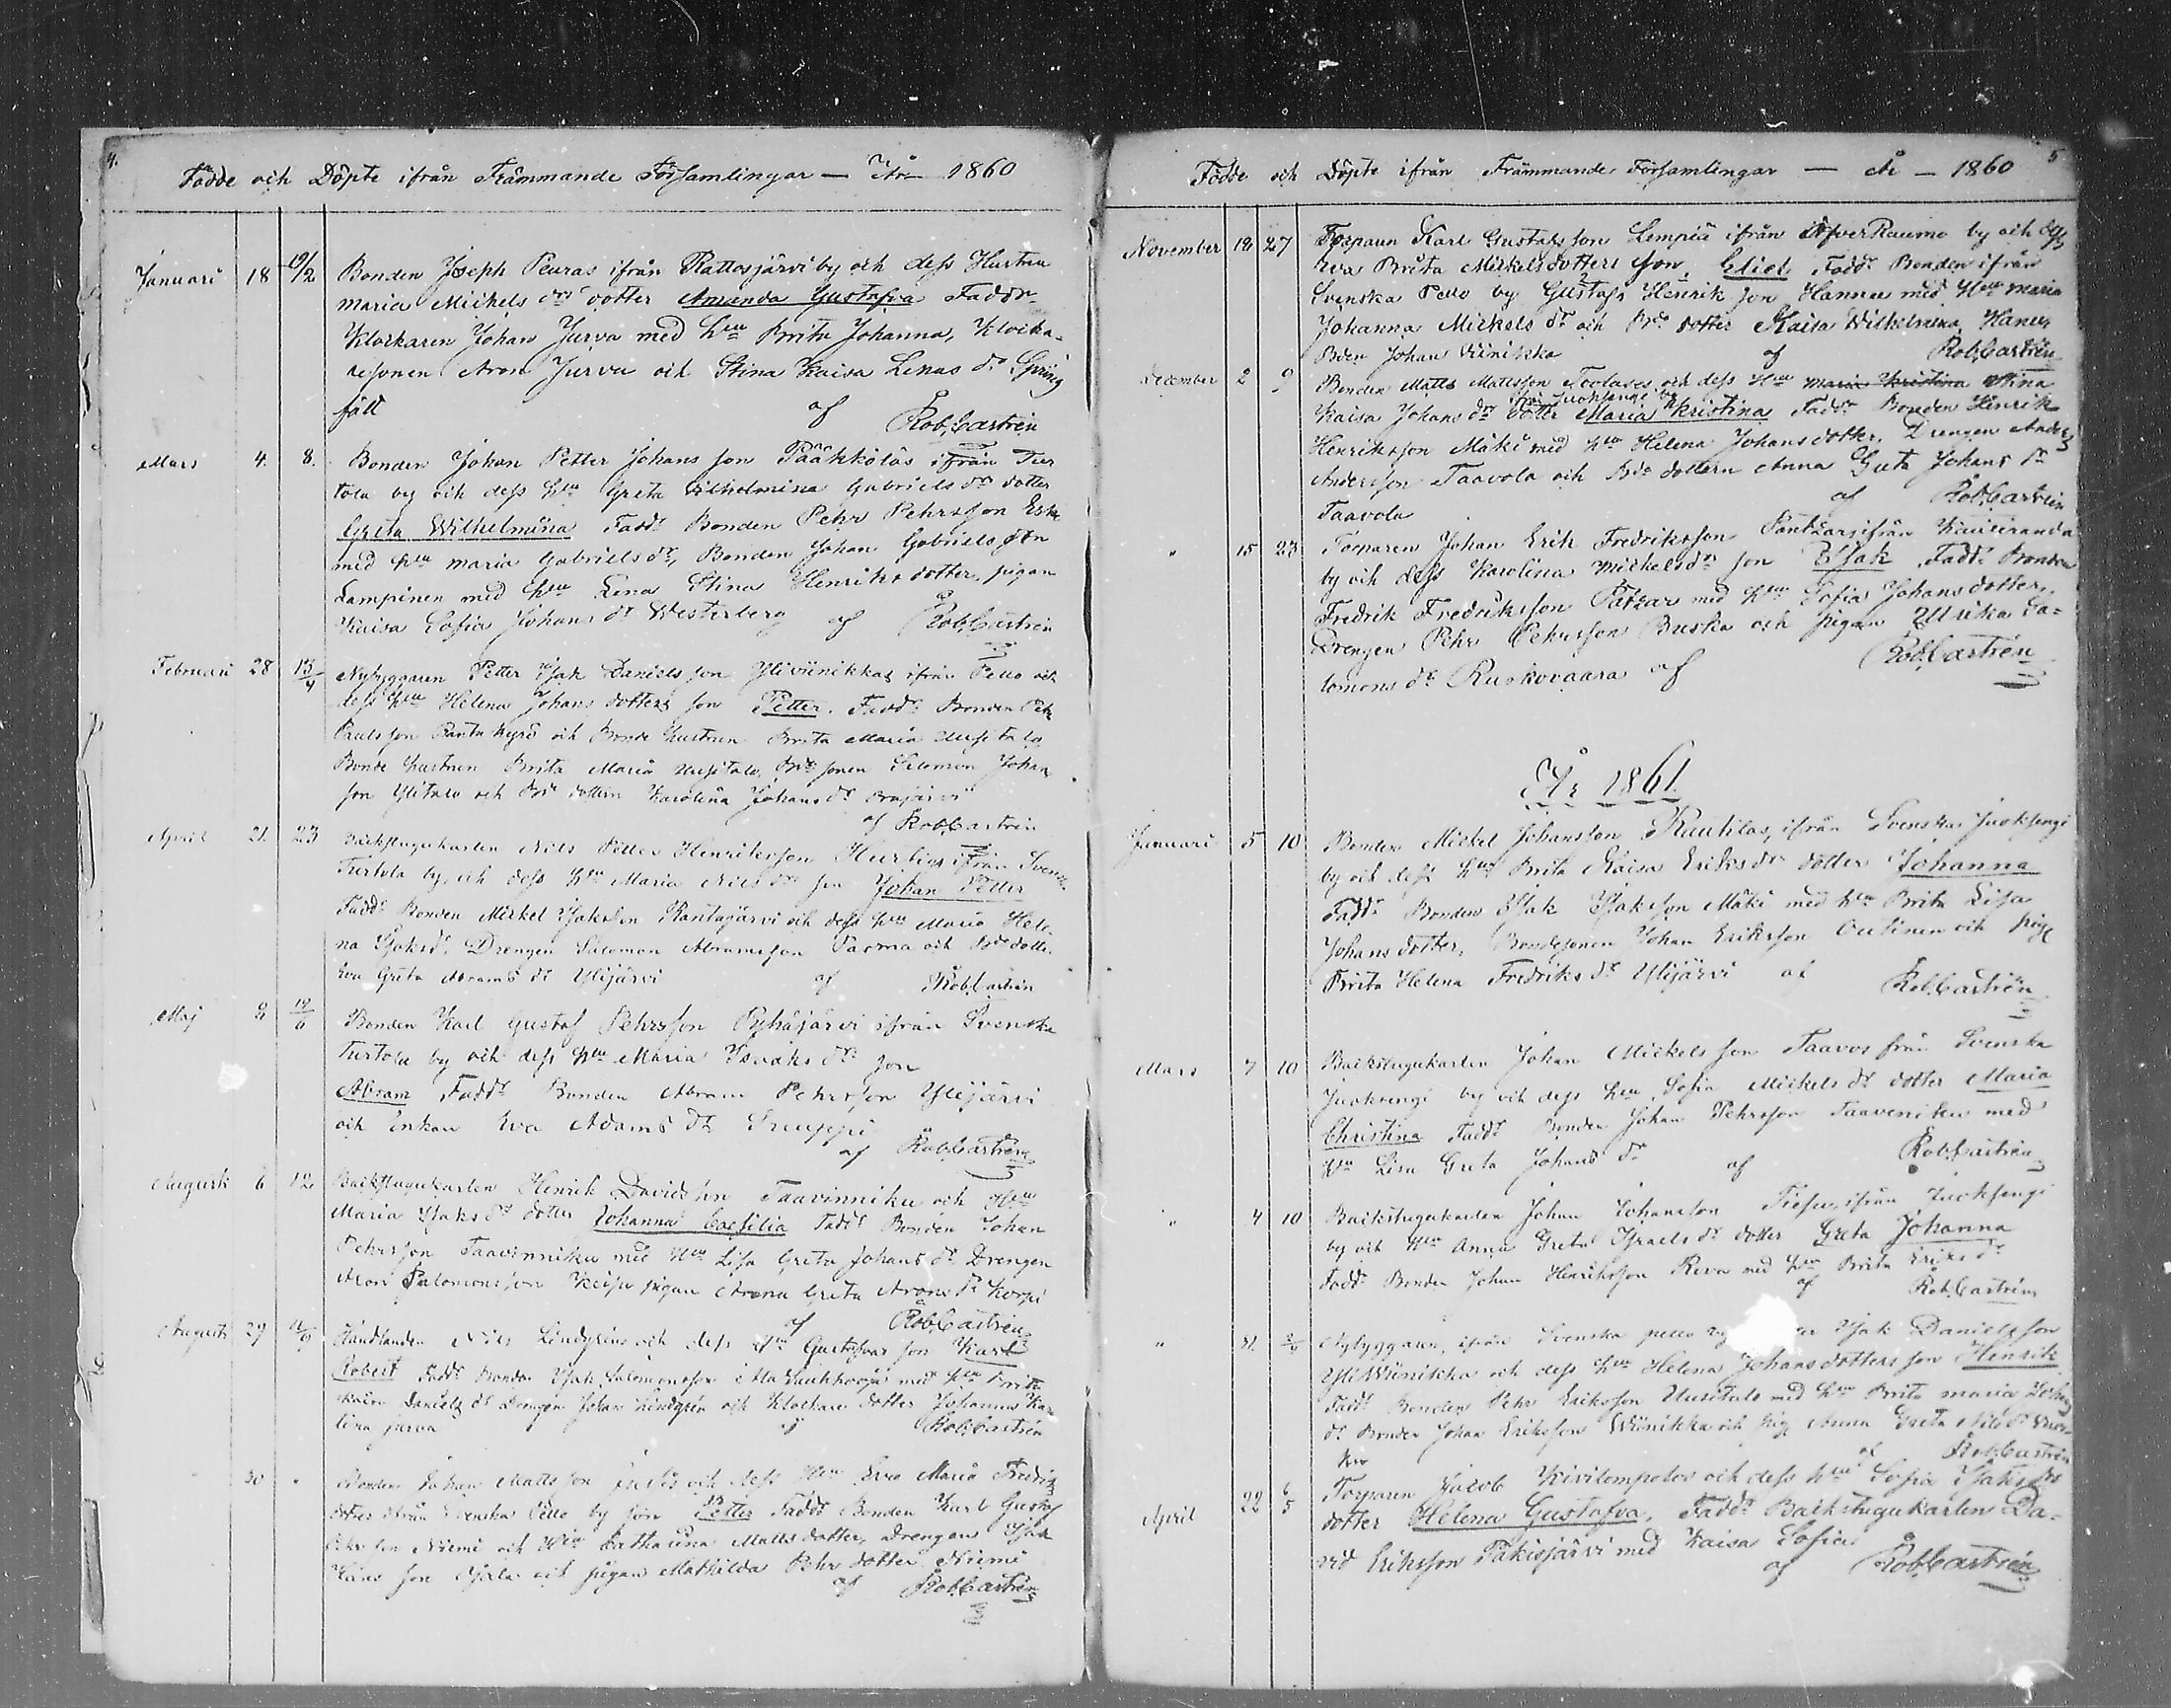 4.
Födde och Döpte ifrån Främmande Församlingar — År 1860
Januari 18 19/2 Bonden Joseph Peuras ifrån Rattosjärvi by och dess Hustru
Maria Mickels drs dotter Amanda Gustafva Faddr
Klockaren Johan Jurva med hu Brita Johanna, Klocka-
resonen Aron Jurva och Stina Kaisa Linas dr Spring
fält af Rob. Castrén
Mars 4. 8. Bonden Johan Petter Johansson Pääkkölös ifrån Tur
tola by och dess hu Greta Vilhelmina Gabriels drs dotter
Greta Wilhelmina Faddr Bonden Pehr Pehrsson Esko
med hu Maria Gabriels dr, Bonden Johan Gabrielsson
Lampinen med hu Lena Stina Henriks dotter, pigan
Kaisa Sofia Johans dr Westerberg af Rob. Castrén
Februari 28 15/4 Nybyggaren Petter Isak Danielsson Yliviinikkas ifrån Pello och
dess hu Helena Johans dotters son Petter. Faddr Bonden Pehr
Paulsson Rantakyrö och Bonde hustrun Brita Maria Uusitalo
Bonde hustrun Brita Maria Uusitalo, Bde sonen Salomon Johan
son Ylitalo och Bde dottern Karolina Johans dr
af Rob. Castrén
April 21. 23 Backstugukarlen Nils Petter Henriksson Hurtigs ifrån Svenska
Turtola by, och dess hu Maria Nils drs son Johan Petter
Faddr Bonden Mickel Isaksson Rantajärvi och dess hu Maria Hele-
na Isaks dr. Drengen Salomon Abramsson Parma och Bde dotter
Eva Greta Abrams dr Ylijärvi af Rob. Castrén
Maj 2 12/6 Bonden Karl Gustaf Pehrsson Pyhäjärvi ifrån Svenska
Turtola by och dess hu Maria Isaaks drs son
Abram Faddr Bonden Abram Pehrsson Ylijärvi
och Enkan Eva Adams dr
af Rob. Castrén
Augusti 6 12 Backstugukarlen Henrik Davidsson Taavinniku och Hu
Maria Isaks drs dotter Johanna Caesilia Faddr Bonden Johan
Pehrsson Taavinniku med Hu Lisa Greta Johans dr Drengen
Aron Salomonsson pigan Anna Greta Arons dr Korpi
af Rob. Castrén
Augusti 29 2/9 Handlanden Nils Lindgrens och dess hu Gustafvas son Karl
Robert Faddr Bonden Isak Salomonsson med hu Brita
Kaisa Daniels dr Drengen Johan Lindgren och Klockare dotter Johanna Ka-
lina Jurva af Rob. Castrén
30 " Bonden Johan Mattsson och dess Hu Eva Maria Fredriks
dotter ifrån Svenska Pello by son Petter Faddr Bonden Karl Gustaf
Pehrsson Niemi och Hu Catharina Matts dotter, Drengen Isak
Hansson och pigan Mathilda Pehrs dotter Niemi
af Rob. Castrén
5
Födde och Döpte ifrån Främmande Församlingar — År — 1860
November 18 27 Torparen Karl Gustafsson Lempiä ifrån Öfver Raumo by och
Eva Brita Mickelsdotters son, Eliel Faddr Bonden ifrån
Svenska Pello by Gustafs Henriksson Hannu med Hu Maria
Johanna Mickels dr och Bde dotter Kaisa Wilhelmina Hannu
Bden Johan Viinikka af Rob. Castrén
December 2 9 Bonden Matts Mattsson och dess Hu Maria Kristina Stina
ifrån Juoksengi by
Kaisa Johans drs dotter Maria Kristina Faddr Bonden Henrik
Henriksson Mäki med hu Helena Johansdotter, Drengen Anders
Andersson Taavola och Bde dottern Anna Greta Johans dr
Taavola af Rob. Castrén
" 15 23 Torparen Johan Erik Fredriksson ifrån Kauliranda
by och dess Karolina Mickelsdrs son Isak, Faddr Bonden
Fredrik Fredriksson med hu Sofia Johansdotter,
Drengen Pehr Pehrsson Buska och pigan Ulrika Sa-
lomons dr Ruskovaara af Rob. Castrén
År 1861.
Januari 5 10 Bonden Mickel Johansson Rautilas, ifrån Svenska Juoksengi
by och dess hu Brita Kaisa Eriks drs dotter Johanna
Faddr Bonden Isak Isaksson Mäki med hu Brita Lisa
Johans dotter, Bondesonen Johan Eriksson Outinen och pige
Brita Helena Fredriks dr Ylijärvi af Rob. Castrén
Mars 7 10 Backstugukarlen Johan Mickelsson Taavos från Svenska
Juoksengi by och dess hu Sofia Mickels drs dotter Maria
Christina Faddr Bonden Johan Pehrsson Taaveniku med
Hu Lisa Greta Johans dr af Rob. Castrén
" 4 10 Backstugukarlen Johan Johansson ifrån Juoksengi
by och hu Anna Greta Israels drs dotter Greta Johanna
Faddr Bonden Johan Henriksson Reva med hu Brita Eriks dr
af Rob. Castrén
" 31. Nybyggaren, ifrån Svenska Pello by Isak Danielsson
Yliviinikka och dess hu Helena Johansdotters son Henrik
Faddr Bonden Pehr Eriksson Uusitalo med hu Brita Maria Johans
dr Bonden Johan Eriksson Wiinikka och pig Anna Greta Nils dr
af Rob. Castrén
April 22 6/5 Torparen Jacob Kivilompolos och dess hu Sofia Isaks drs
dotter Helena Gustafva, Faddr Backstugukarlen Da-
vid Eriksson Pakisjärvi med Kaisa Sofia
af Rob. Castrén